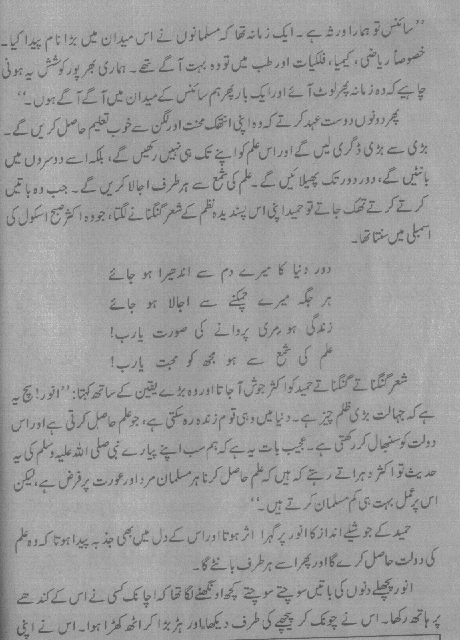 ”سائنس تو ہمارا ورثہ ہے۔ ایک زمانہ تھا کہ مسلمانوں نے اس میدان میں بڑا نام پیدا کیا۔
خصوصاً ریاضی، کیمیا، فلکیات اور طب میں تو وہ بہت آگے تھے۔ ہماری بھرپور کوشش یہ ہونی
چاہیے کہ وہ زمانہ پھر لوٹ آئے اور ایک بار پھر ہم سائنس کے میدان میں آگے آگے ہوں۔“
پھر دونوں دوست عہد کرتے کہ وہ اپنی انتھک محنت اور لگن سے خوب تعلیم حاصل کریں گے۔
بڑی سے بڑی ڈگری لیں گے اور اس علم کو اپنے تک ہی نہیں رکھیں گے، بلکہ اسے دوسروں میں
بانٹیں گے، دور دور تک پھیلائیں گے۔ علم کی شمع سے ہر طرف اجالا کریں گے۔ جب وہ باتیں
کرتے کرتے تھک جاتے تو حمید اپنی اس پسندیدہ نظم کے شعر گنگنانے لگتا، جو وہ اکثر صبح اسکول کی
اسمبلی میں سنتا تھا۔
دور دنیا کا میرے دم سے اندھیرا ہو جائے
ہر جگہ میرے چمکنے سے اجالا ہو جائے
زندگی ہو مری پروانے کی صورت یارب!
علم کی شمع سے ہو مجھ کو محبت یارب!
شعر گنگناتے گنگناتے حمید کو اکثر جوش آ جاتا اور وہ بڑے یقین کے ساتھ کہتا: ”انور! سچ یہ
ہے کہ جہالت بڑی ظلم چیز ہے۔ دنیا میں وہی قوم زندہ رہ سکتی ہے، جو علم حاصل کرتی ہے اور اس
دولت کو سنبھال کر رکھتی ہے۔ عجیب بات یہ ہے کہ ہم سب اپنے پیارے نبی صلی اللہ علیہ وسلم کی یہ
حدیث تو اکثر دہراتے رہتے کہ ہیں کہ علم حاصل کرنا ہر مسلمان مرد اور عورت پر فرض ہے، لیکن
اس پر عمل بہت ہی کم مسلمان کرتے ہیں۔“
حمید کے جوشیلے انداز کا انور پر گہرا اثر ہوتا اور اس کے دل میں بھی جذبہ پیدا ہوتا کہ وہ علم
کی دولت حاصل کرے گا اور پھر اسے ہر طرف بانٹے گا۔
انور پچھلے دنوں کی باتیں سوچتے سوچتے کچھ اونگھنے لگا تھا کہ اچانک کسی نے اس کے کندھے
پر ہاتھ رکھا۔ اس نے چونک کر پیچھے کی طرف دیکھا اور ہڑبڑا کر اٹھ کھڑا ہوا۔ اس نے اپنی